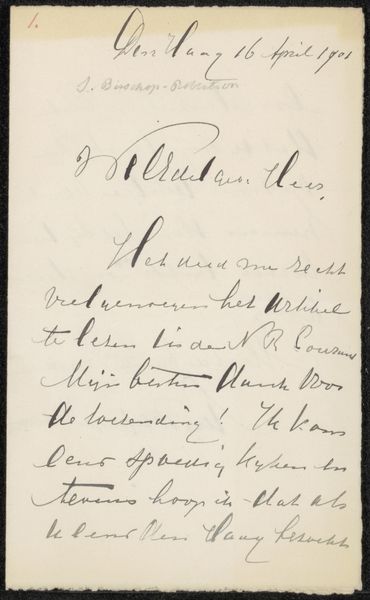 1.
Den Haag 16 April 1901
S. Bisschop-Robertson
WelEdelgeb. Heer.
Het deed me recht
veel genoegen het artikel
te lezen in de N R Courant
Mijn besten dank voor
de toezending! Ik kom
eens spoedig kijken en
tevens hoop ik dat als
U eens Den Haag bezoekt